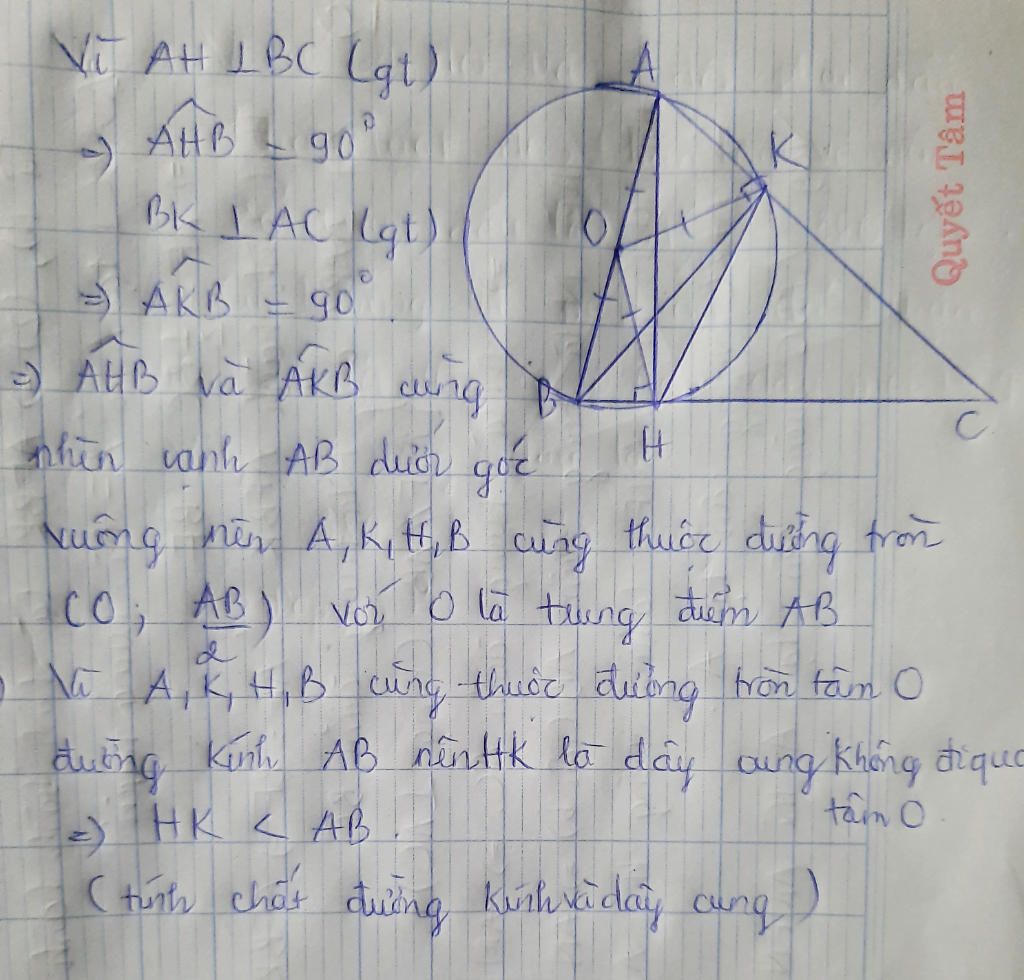 Vì AH ⊥ BC (gt)
=> AHB = 90°
BK ⊥ AC (gt)
=> AKB = 90°.
=> AHB và AKB cùng
nhìn cạnh AB dưới góc
vuông nên A, K, H, B cùng thuộc đường tròn
(O; AB/2) với O là trung điểm AB
Vì A, K, H, B cùng thuộc đường tròn tâm O
đường kính AB nên HK là dây cung không đi qua
tâm O.
=> HK < AB.
(tính chất đường kính và dây cung)
A
K
O
B
H
C
Quyết Tâm